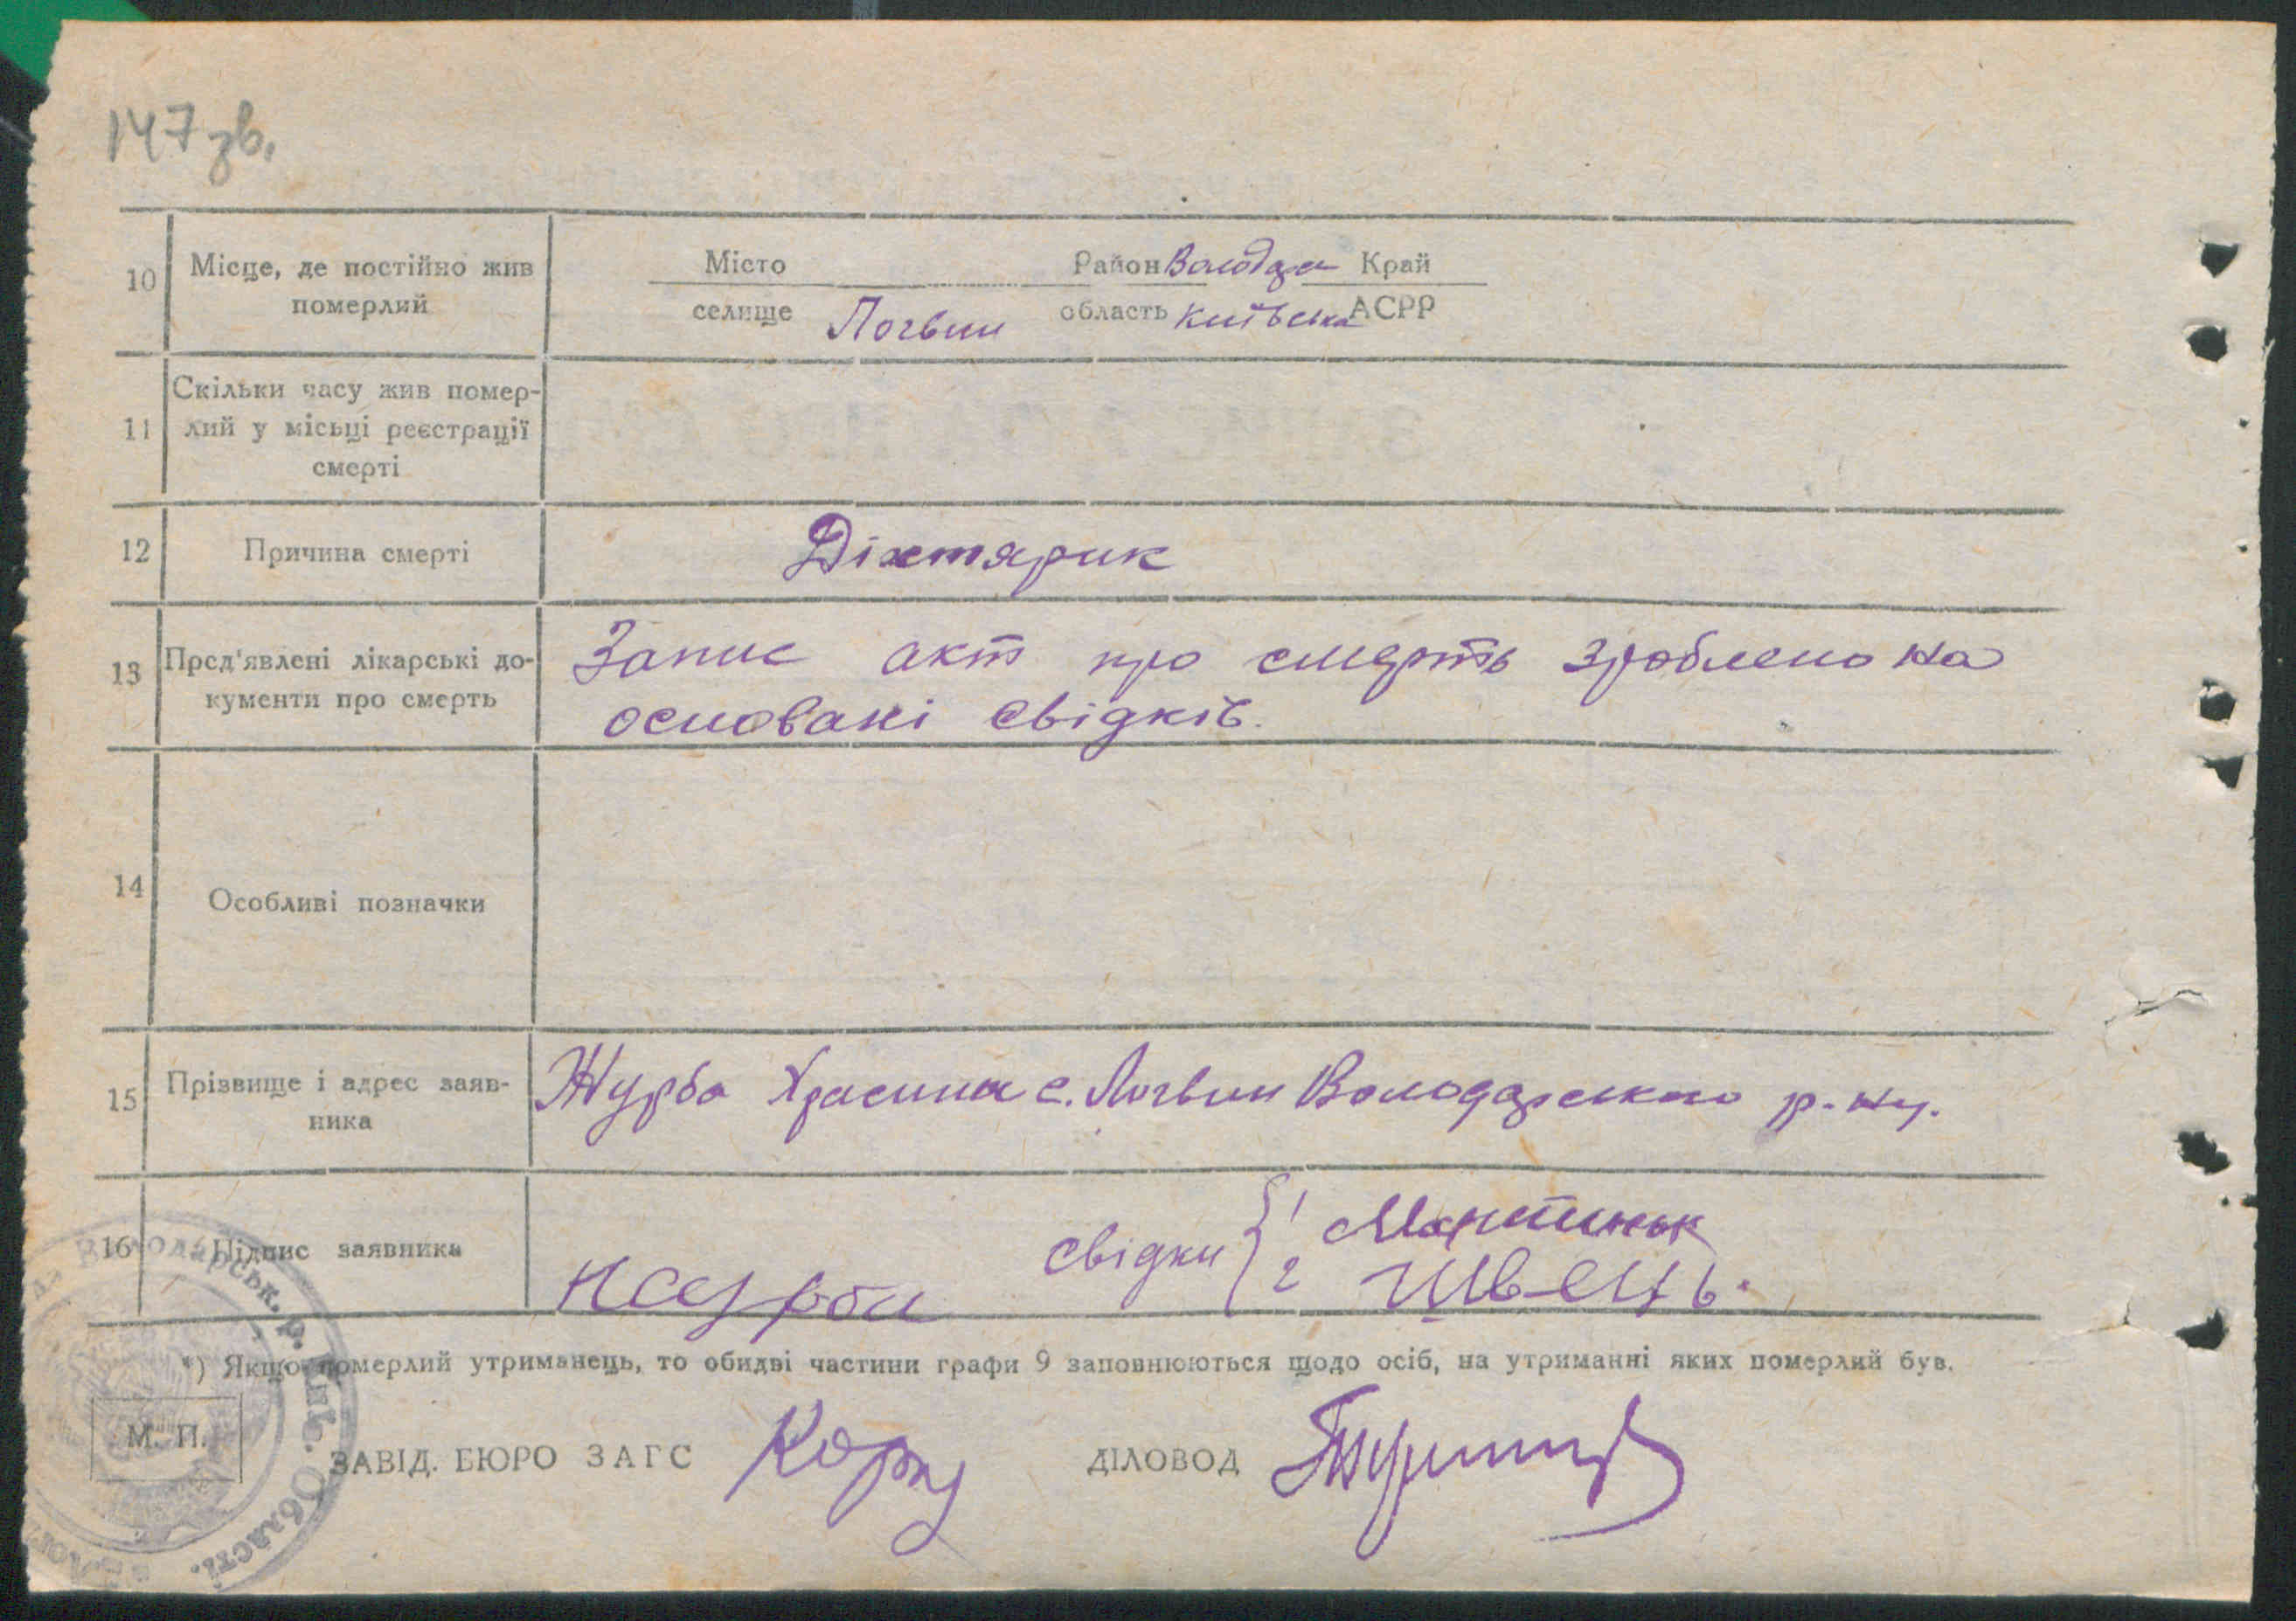 147 зв.
10 Місце, де постійно жив померлий
Місто Район Володарс Край
селище Логвин область Київська АСРР
11 Скільки часу жив помер-
лий у місьці реєстрації
смерті
12 Причина смерті Діхтярик
13 Пред'явлені лікарські до-
кументи про смерть
Запис акт про смерть зроблено на
основані свідків.
14 Особливі позначки
15 Прізвище і адрес заяв-
ника
Журба с. Логвин Володарського р-ну.
16 Підпис заявника
свідки 1
2 Швець.
*) Якщо померлий утриманець, то обидві частини графи 9 заповнюються щодо осіб, на утриманні яких померлий був.
М. П.
ЗАВІД. БЮРО ЗАГС ДІЛОВОД
Володарськ. р. Київ. Області.